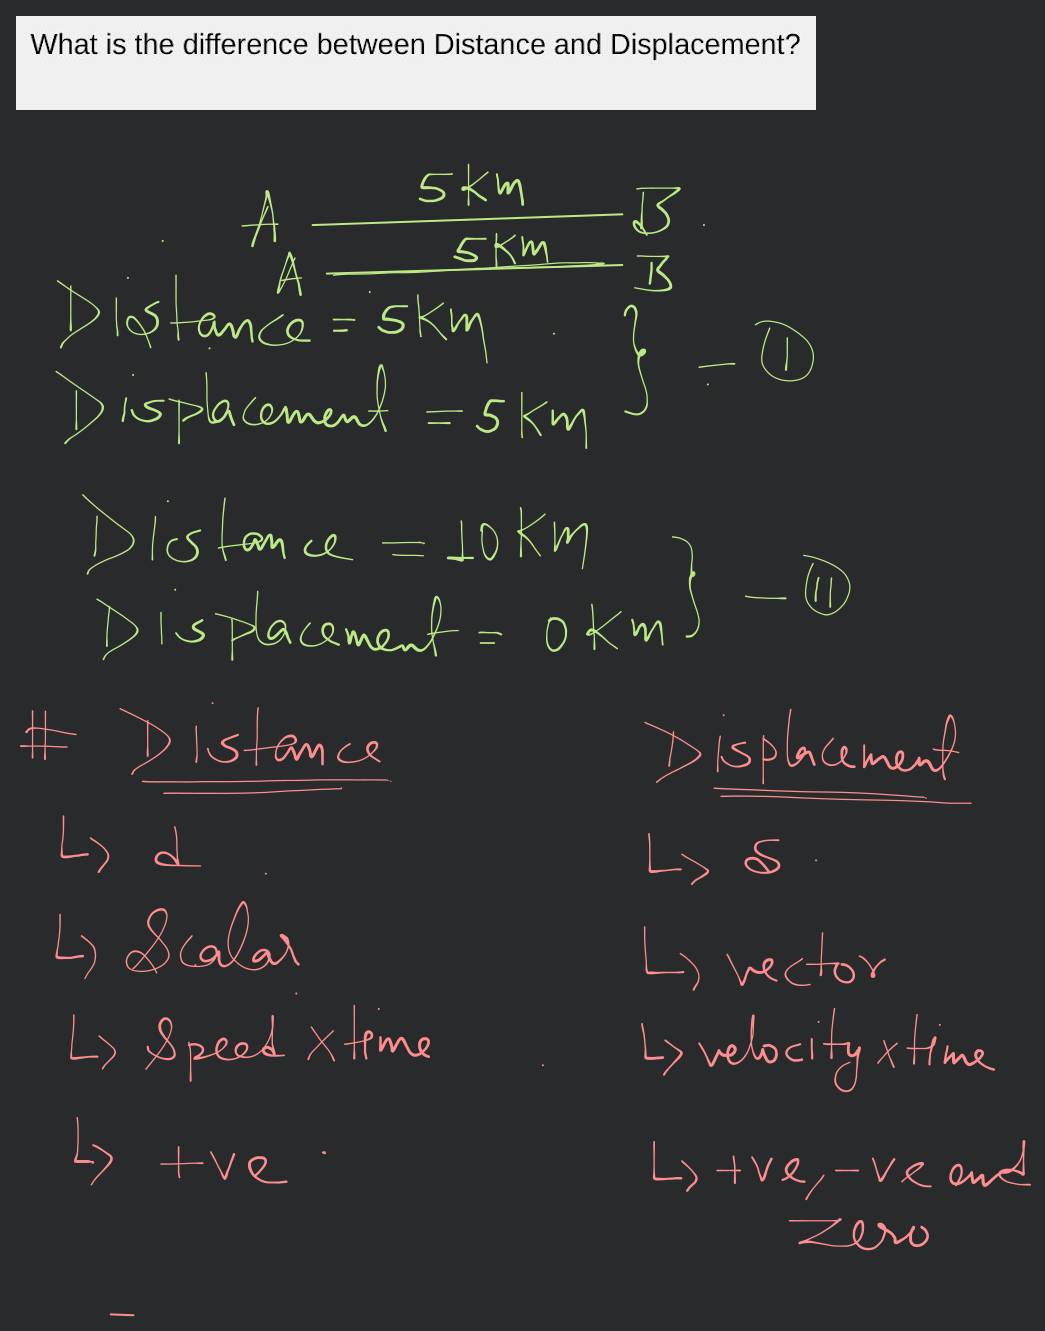 What is the difference between Distance and Displacement?
A 5 Km B
A 5 Km B
Distance = 5 Km
Displacement = 5 Km } – I
Distance = 10 Km
Displacement = 0 Km } – II
# Distance Displacement
↳ d ↳ s
↳ Scalar ↳ vector
↳ Speed × time ↳ velocity × time
↳ +ve ↳ +ve, -ve and
zero